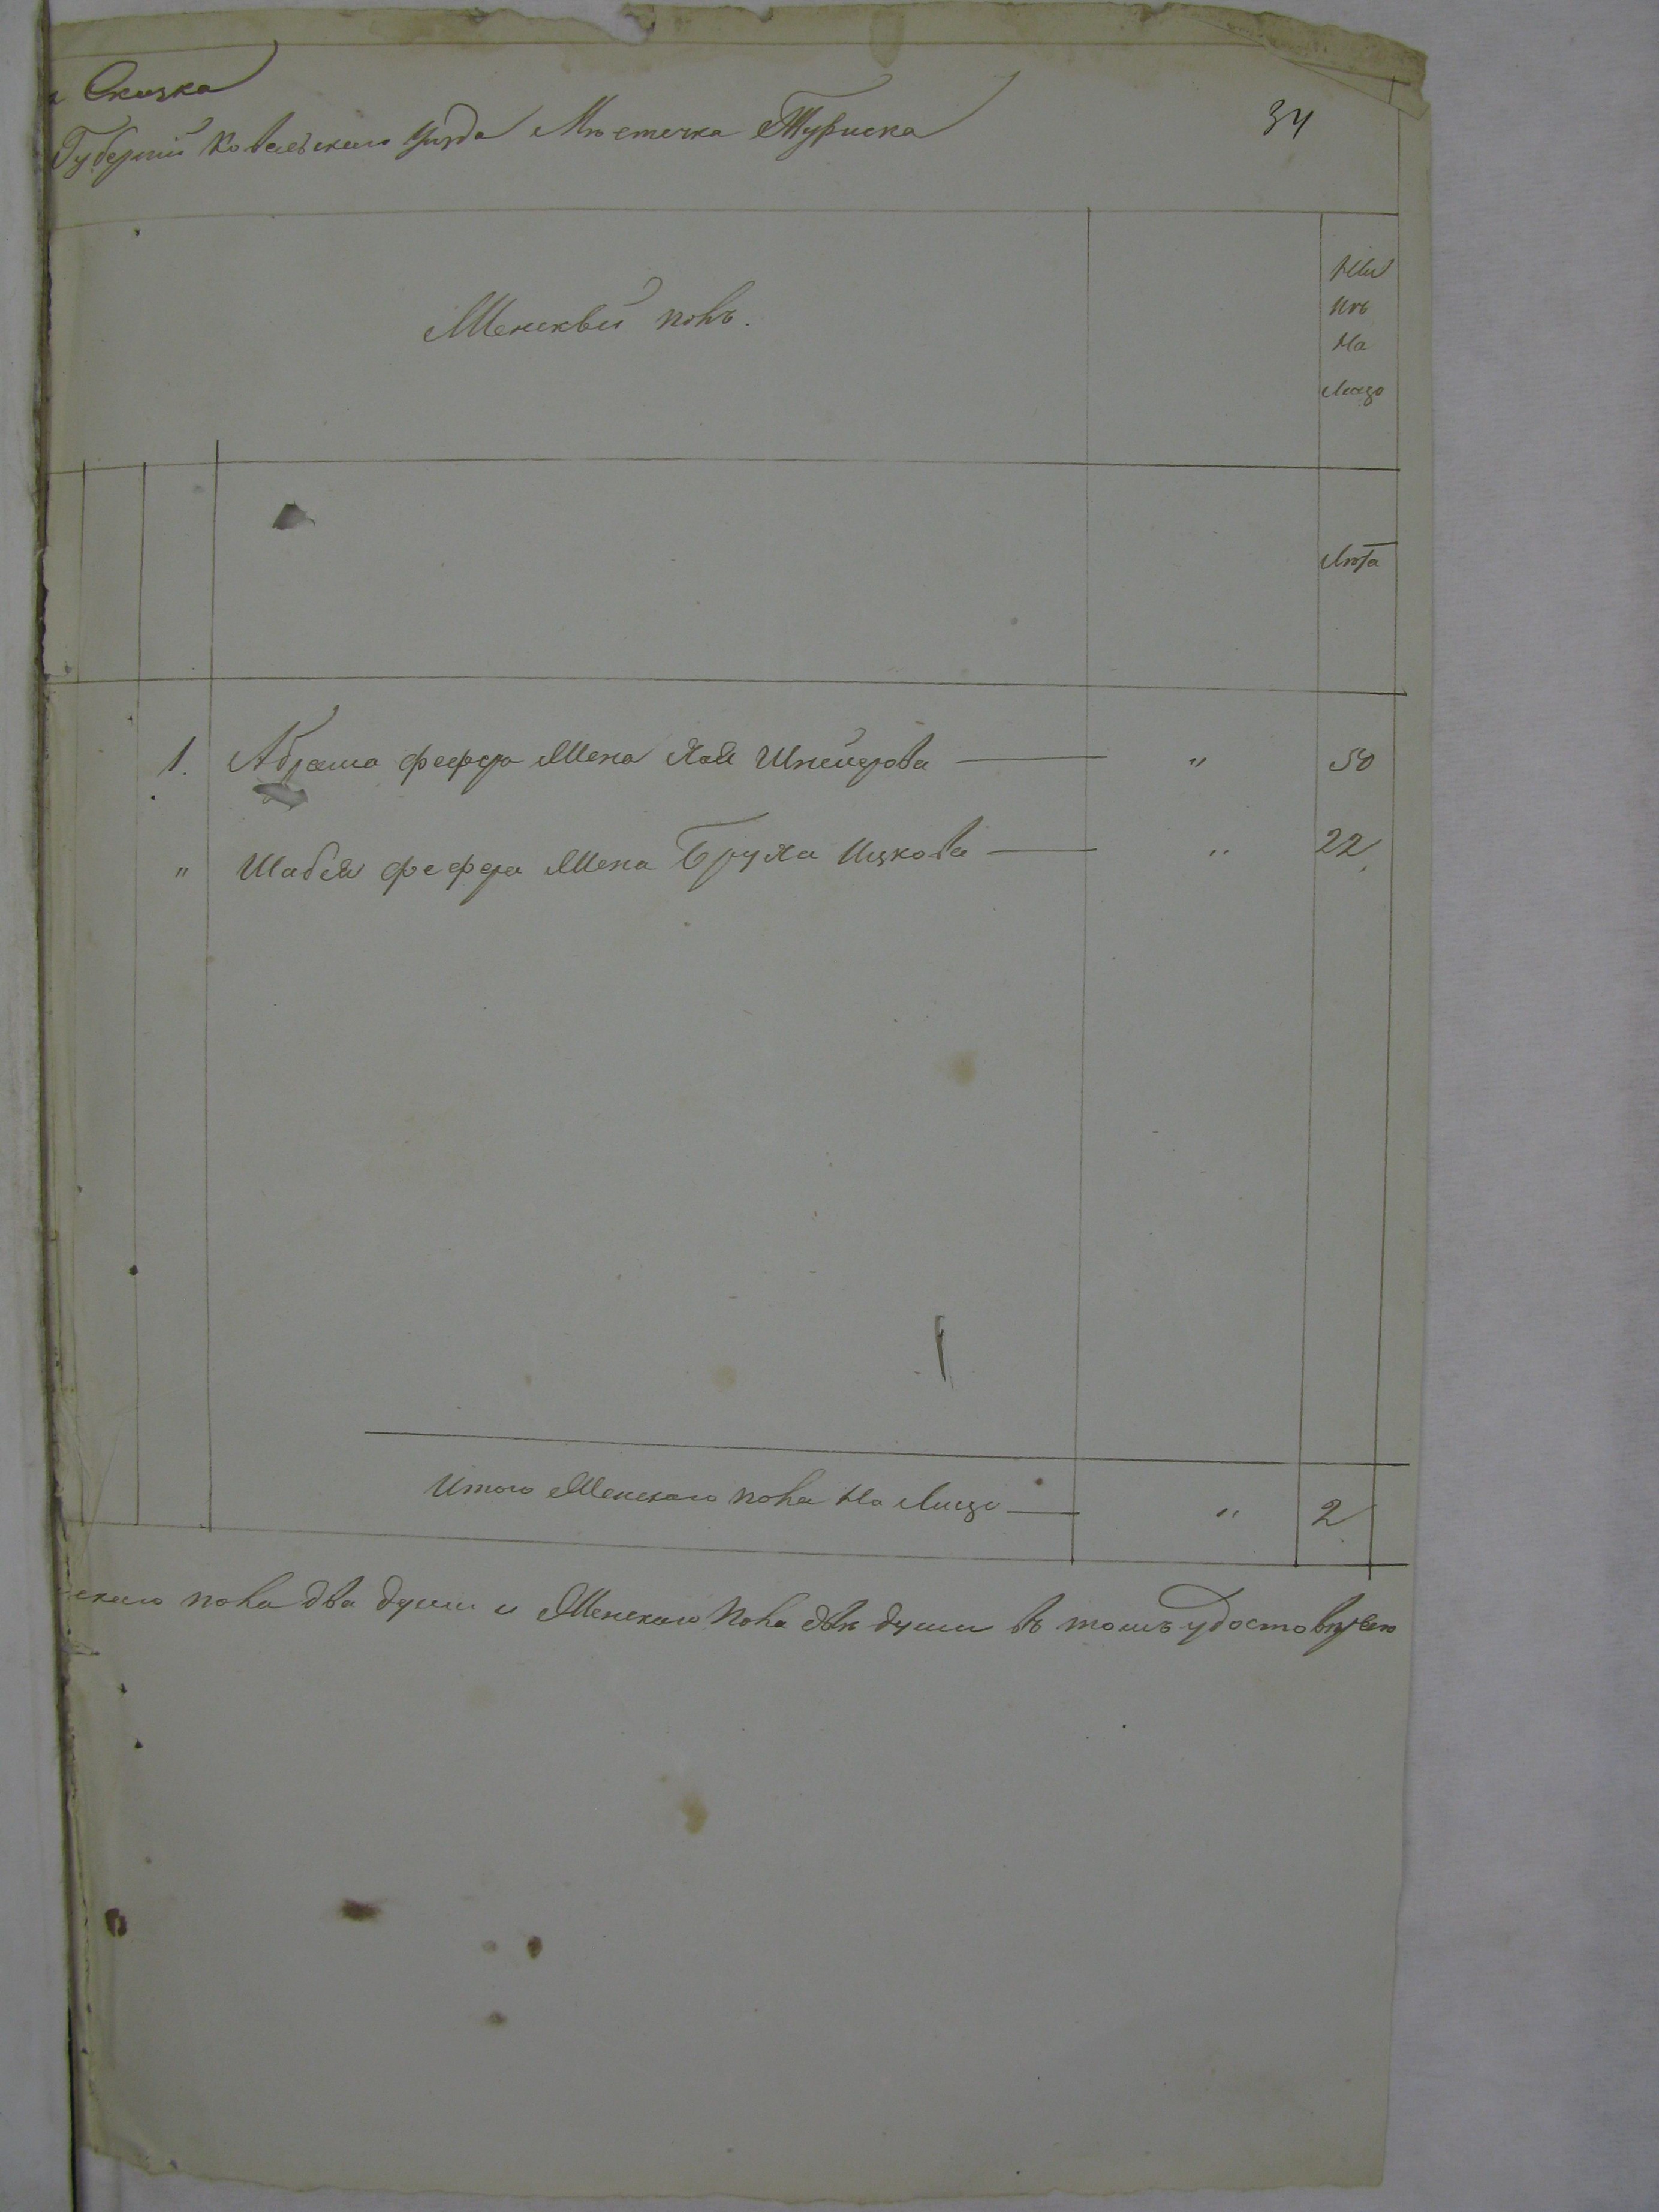 Сказка
34
Губернiи Ковельскаго уѣзда Мѣстечка Туриска
Женскѣй полъ.
Ны
нѣ
На
лицо
Лѣта
1. Абрама фефера Жена Хая Шнеерова — " 50
" Шабея фефера Жена Бруха Ицкова — " 22
Итого Женскаго пола На Лицо — " 2
скаго пола два души и Женскаго пола двѣ души въ томъ удостовѣряю